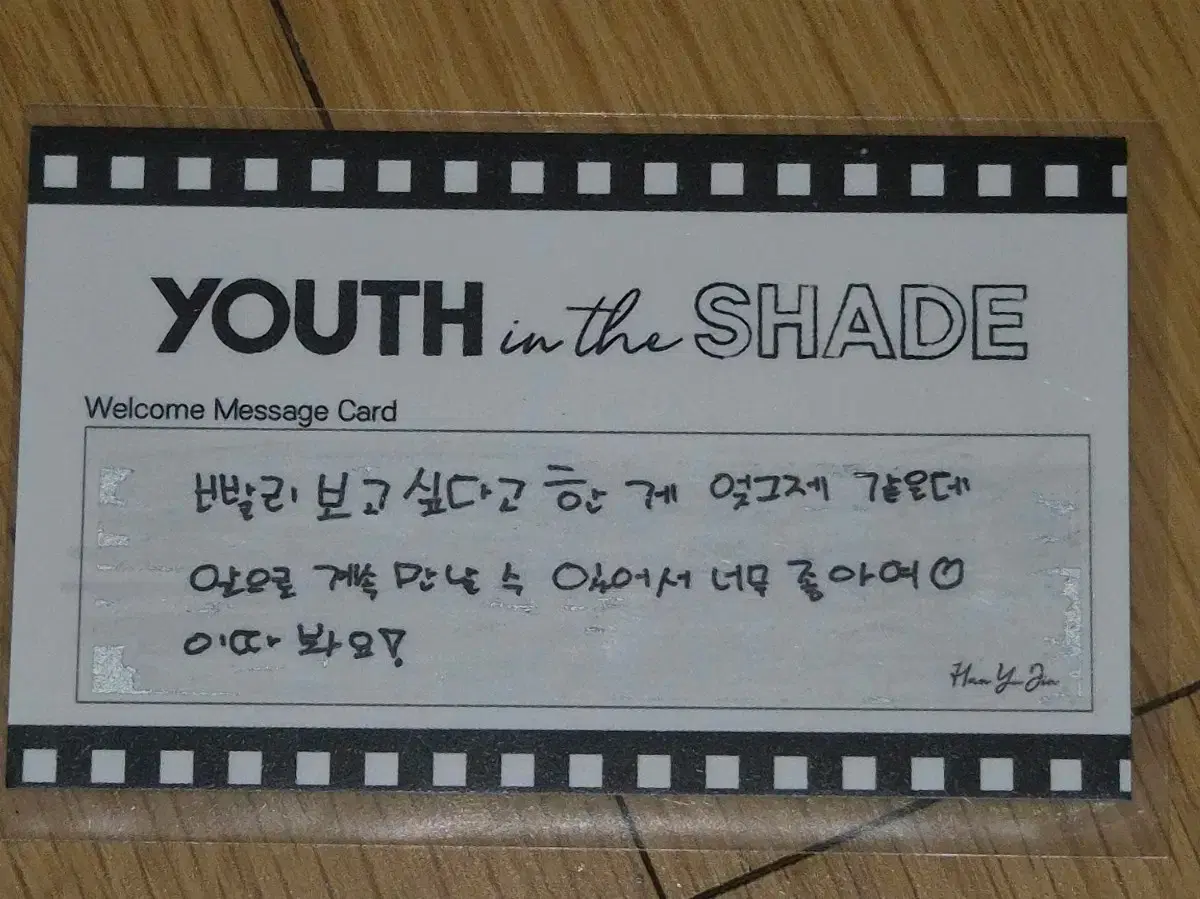 YOUTH in the SHADE
Welcome Message Card
빨리 보고 싶다고 한 게 엊그제 같은데
앞으로 계속 만날 수 있어서 너무 좋아여
이따 봐요!
Han Yu Jin